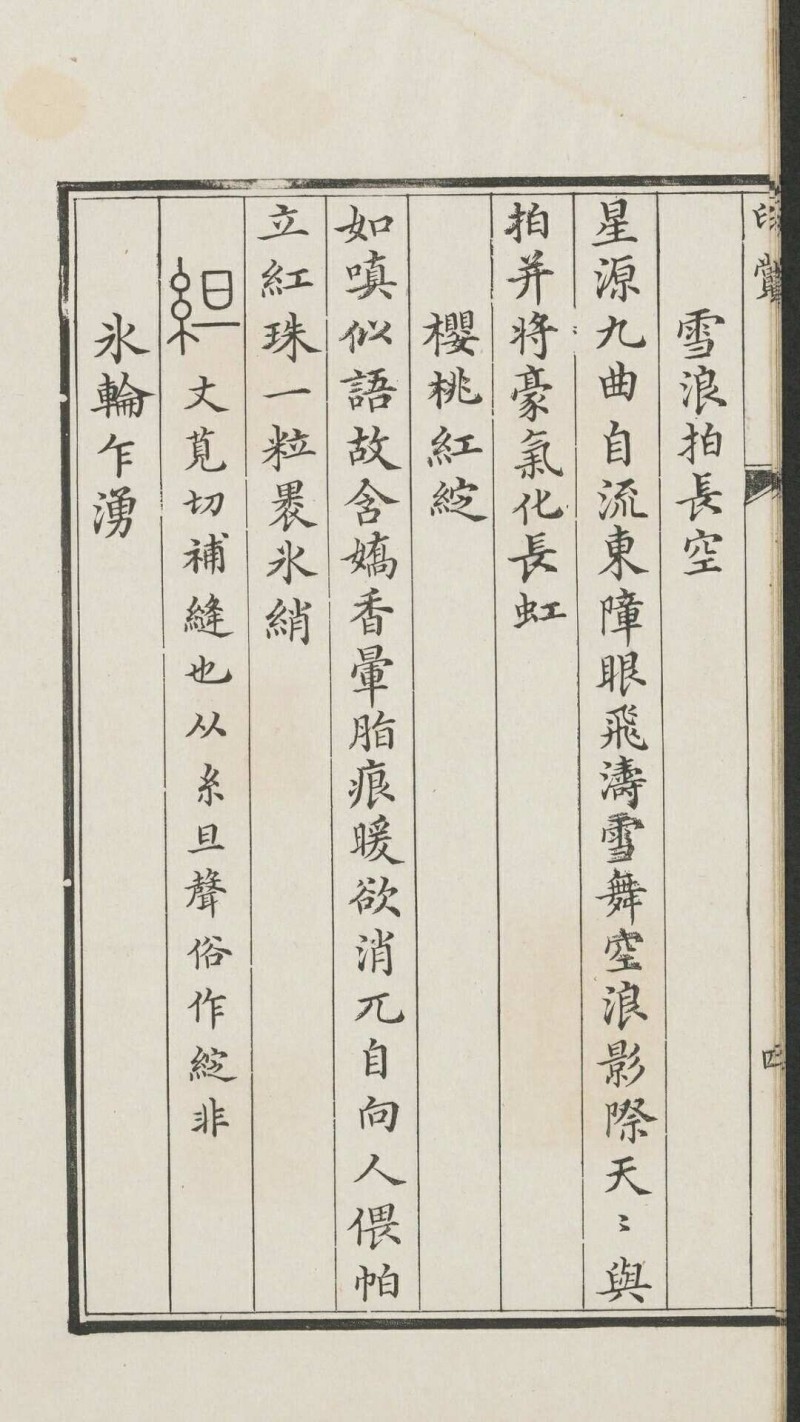 印賞
四
雪浪拍長空
星源九曲自流東障眼飛濤雪舞空浪影際天〻與
拍并將豪氣化長虹
櫻桃紅綻
如嗔似語故含嬌香暈脂痕暖欲消兀自向人偎帕
立紅珠一粒褁氷綃
組 丈莧切補縫也从糸旦聲俗作綻非
氷輪乍湧